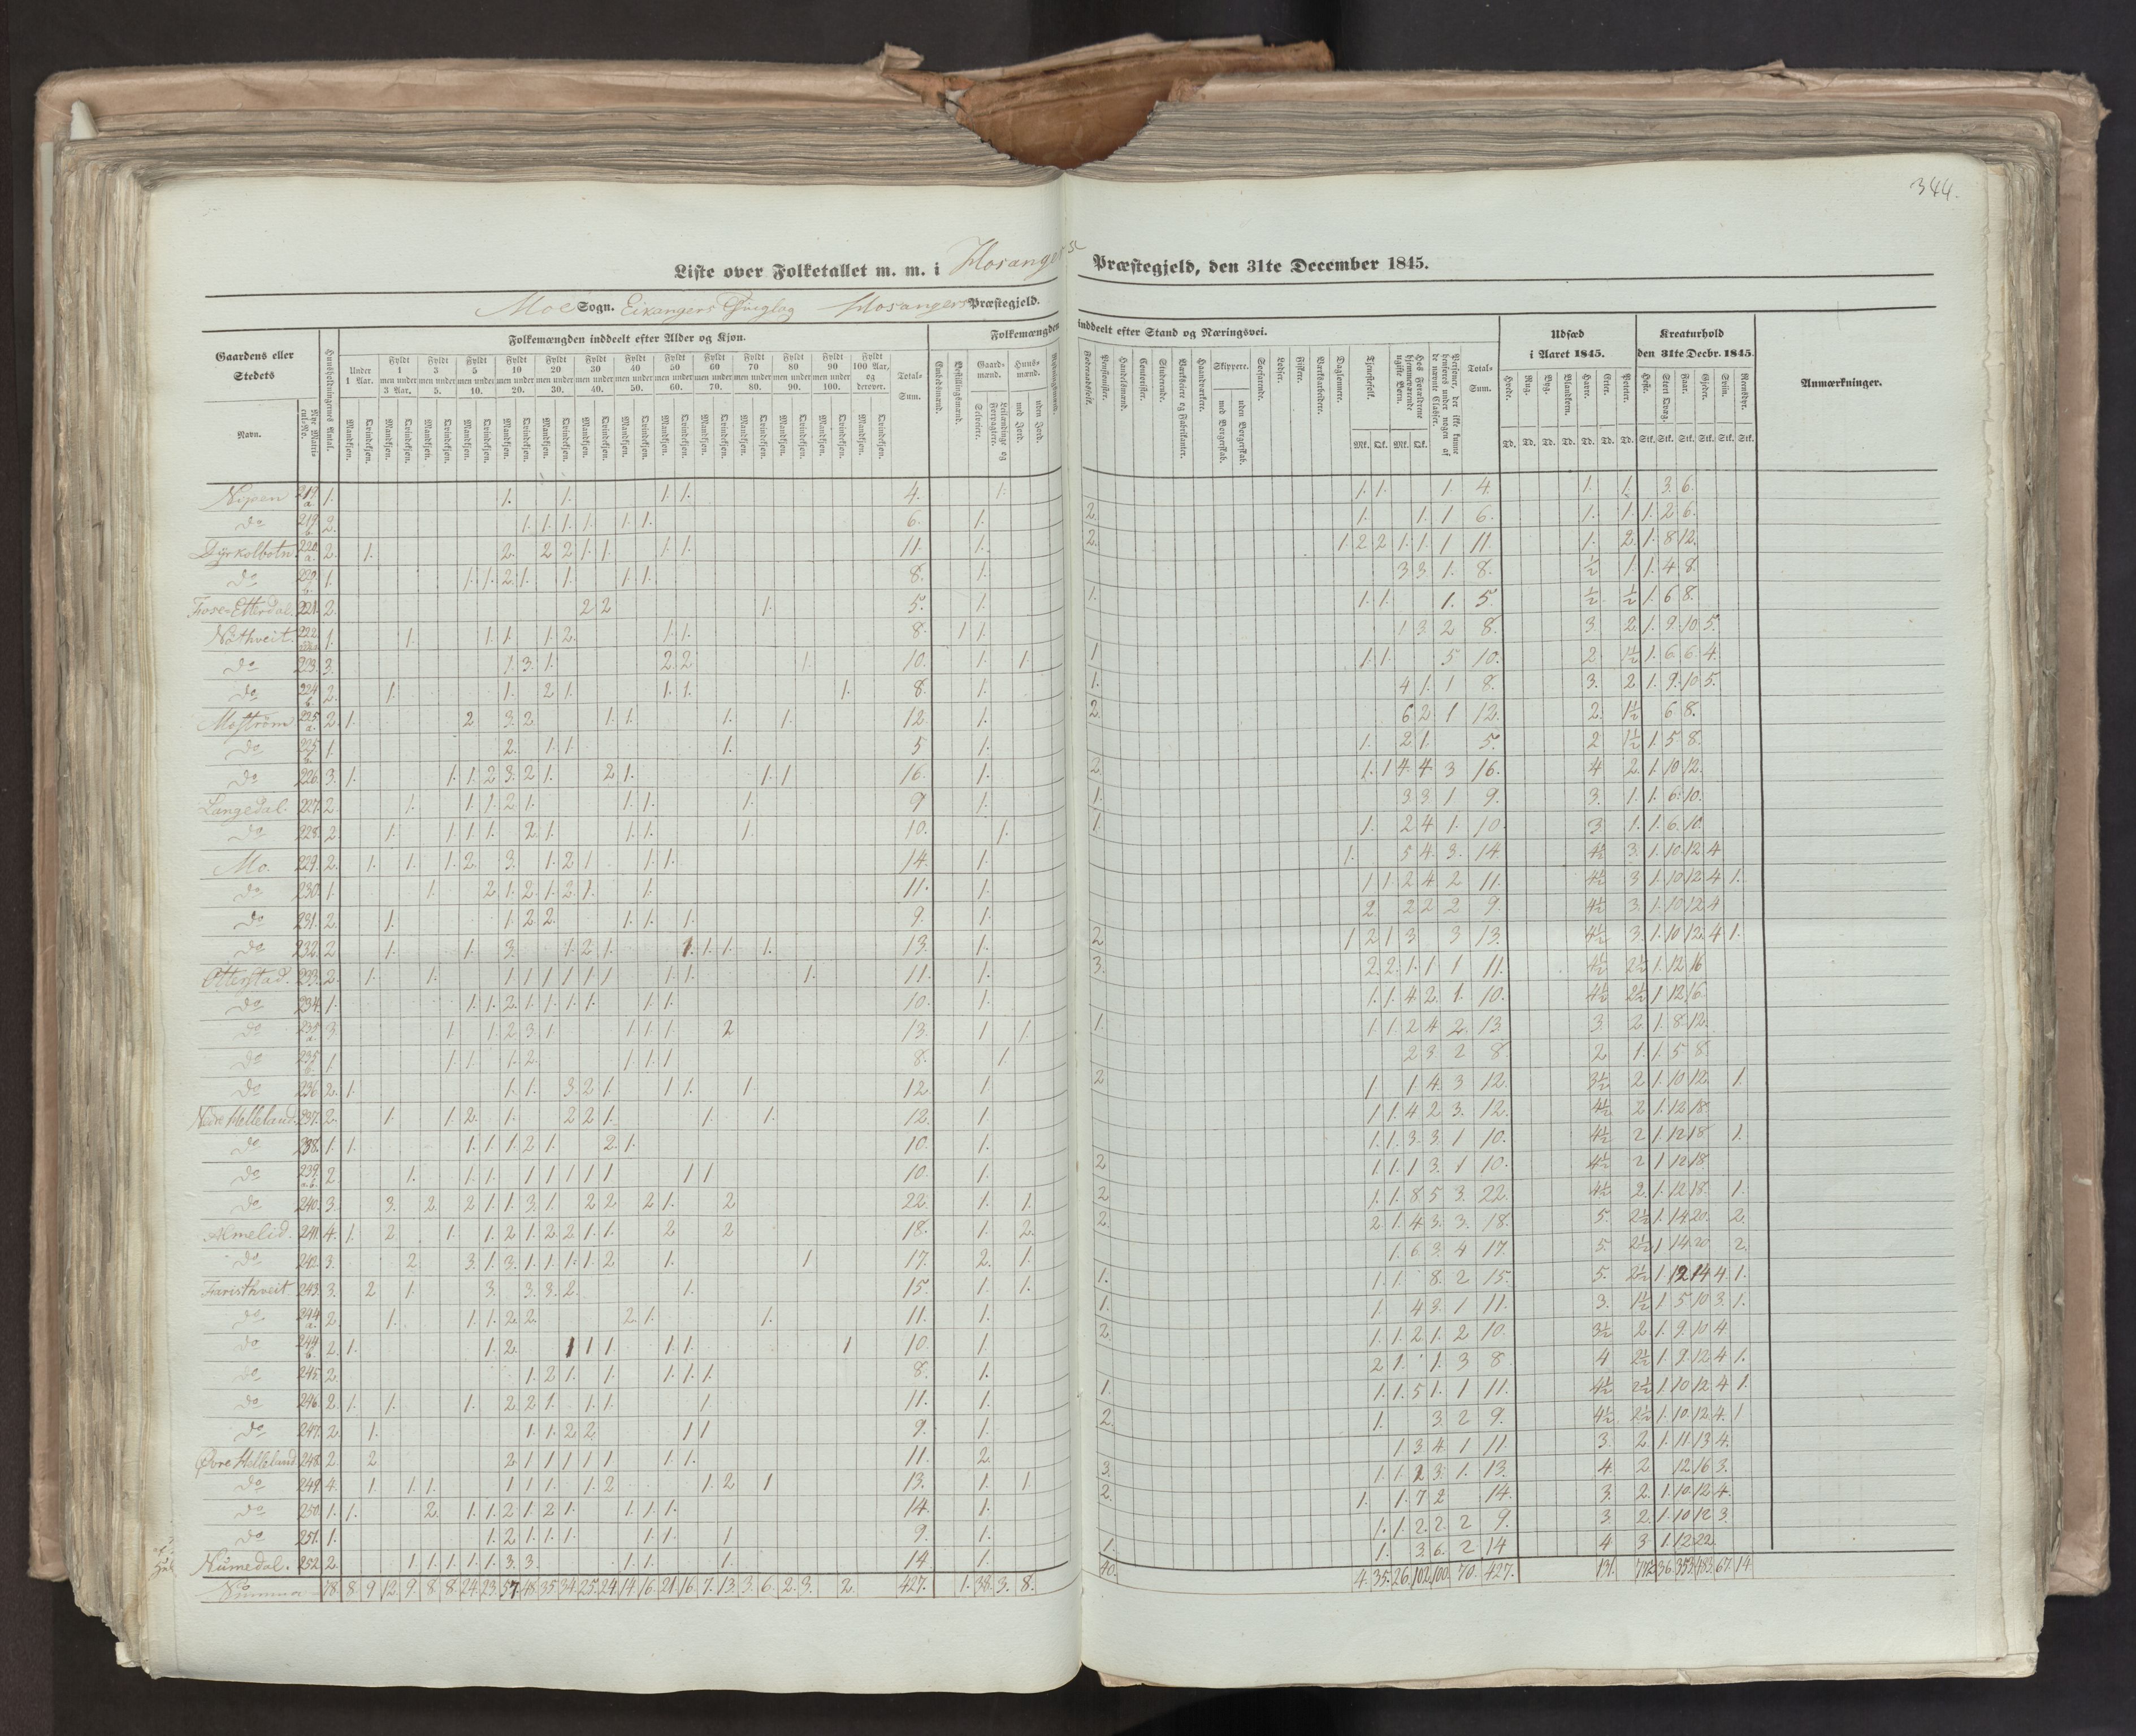 344.
Liste over Folketallet m. m. i Hosangers Præstegjeld, den 31te December 1845.
Moe Sogn. Eixangers Hosangers Præstegjeld.
Gaardens eller Stedets
Navn.
Huusholdningernes Antal.
Folkemængden inddeelt efter Alder og Kjøn.
Under 1 Aar.
Fyldt 1 men under 3 Aar.
Fyldt 3 men under 5.
Fyldt 5 men under 10.
Fyldt 10 men under 20.
Fyldt 20 men under 30.
Fyldt 30 men under 40.
Fyldt 40 men under 50.
Fyldt 50 men under 60.
Fyldt 60 men under 70.
Fyldt 70 men under 80.
Fyldt 80 men under 90.
Fyldt 90 men under 100.
Fyldt 100 Aar, og derover.
Mandkjøn. Qvindekjøn.
Total-Sum.
Folkemængden inddeelt efter Stand og Næringsvei.
Embedsmænd.
Bestillingsmænd.
Gaardmænd.
Selveiere.
Leilændinge og Forpagtere.
Huusmænd.
med Jord.
uden Jord.
Føderaadsfolk.
Pensionister.
Handelsmænd.
Contorister.
Studerende.
Værkseiere og Fabrikanter.
Haandværkere.
Skippere.
med Borgerskab.
uden Borgerskab.
Søefarende.
Lodser.
Fiskere.
Værksarbeidere.
Daglønnere.
Tjenestefolk.
Mk. Qk.
Hos Forældrene hjemmeværende ugifte Børn.
Mk. Qk.
Personer, der ikke kunne henføres under nogen af de nævnte Classer.
Total-Sum.
Udsæd i Aaret 1845.
Hvede. Rug. Byg. Blandkorn. Havre. Erter. Poteter.
Td. Td. Td. Td. Td. Td. Td.
Kreaturhold den 31te Decbr. 1845.
Heste. Stort Qvæg. Faar. Gjeder. Sviin. Reensdyr.
Stk. Stk. Stk. Stk. Stk. Stk.
Anmærkninger.
Nipen 219 a. 1. 1. 1. 1. 1. 4. 1. 1. 1. 1. 4. 1. 1. 3. 6.
do 219 b. 2. 1. 1. 1. 1. 1. 1. 6. 1. 2. 1. 1. 1 6. 1. 1. 1. 2 6.
Dyrkolbotn. 220 a. 2. 1. 2. 2 2 1. 1. 1. 1. 11. 1. 2. 1 2 2 1. 1. 1 11. 1. 2. 1. 8 12.
do 220 b. 1. 1. 1. 2 1. 1. 1. 1. 8. 1. 3 3 1. 8. ½ 1. 1. 4 8.
Fosse-Etterdal. 221. 2. 2 2 1. 5. 1. 1. 1. 1. 1. 5. ½ ½ 1. 6 8.
Nöthveit. 222. 1. 1. 1. 1. 1. 2. 1. 1. 8. 1 1. 1 3 2 8. 3. 2. 1. 9. 10. 5.
do 223. 3. 1. 3. 1. 2. 2 1. 10. 1. 1. 1 1. 1. 5 10. 2 1½ 1. 6. 6. 4.
do 224 b. 2. 1. 1. 2 1. 1. 1. 1. 8. 1. 1. 4 1. 1 8. 3. 2. 1. 9. 10 5.
Mostrøm 225 a. 2. 1. 2 3. 2. 1. 1. 1. 1. 12. 1. 2. 6 2 1 12. 2. 1½ 6 8.
do 225 b. 1. 2. 1. 1. 1. 5 1. 1. 2 1. 5. 2 1½ 1. 5 8.
do 226. 3. 1. 1. 1. 2 3. 2 1. 2 1. 1. 1 16. 1. 2. 1. 1 4. 4 3 16. 4 2. 1. 10 12.
Langedal. 227. 2. 1. 1. 1. 2 1. 1. 1. 1. 9 1. 1. 3 3 1 9. 3. 1. 1. 6. 10.
do 228. 2. 1. 1. 1. 1. 2 1. 1. 1. 1. 10. 1. 1. 1. 2 4 1. 10. 3. 1. 1. 6. 10.
Mo. 229. 2. 1. 1. 1. 2. 3. 1. 2 1 1. 1. 14. 1. 1. 5 4. 3. 14. 4½ 3. 1. 10. 12 4
do 230. 1. 1. 2 1. 2. 1. 2. 1. 1. 11. 1. 1 1. 2 4 2 11. 4½ 3 1. 10 12 4 1.
do 231. 2. 1. 1. 2 2. 1. 1. 1. 9. 1. 2 2 2 2 9. 4½ 3. 1. 10 12 4
do 232. 2 1. 1. 3. 1. 2 1. 1. 1. 1. 1. 13. 1. 2 1 2 1 3 3 13. 4½ 3. 1. 10 12. 4 1.
Otterstad. 233. 2. 1. 1. 1 1 1 1 1 1 1. 1. 1. 11. 1. 3. 2. 2. 1. 1 1 11. 4½ 2½ 1. 12 16
do 234. 1. 1. 1. 2. 1. 1. 1. 1. 1. 1. 10. 1. 1. 1. 4 2. 1. 10. 4½ 2½ 1 12 16.
do 235 a. 3 1. 1. 2. 3. 1. 1. 1. 1. 2 13. 1 1. 1. 1. 1. 2 4 2. 13 3. 2. 1. 8. 12.
do 235 b. 1. 1. 1. 1. 2. 1. 1. 1. 8. 1. 2 3. 2 8. 2 1. 1. 5 8
do 236. 2. 1. 1. 1. 3. 2 1. 1. 1. 1 12. 1 2 1 1. 4. 3 12. 3½ 2 1. 10 12. 1.
Nedre Helleland 237. 2. 1. 1. 2. 1. 2 2 1. 1. 1. 12. 1. 1 1. 4 2 3. 12. 4½ 2 1. 12 18.
do 238. 1. 1. 1. 1. 1. 2 1. 2. 1. 10. 1. 1. 1. 3. 3. 1 10. 4½ 2 1. 12 18 1.
do 239. 2. 1. 1. 1. 1 1 1 1 1 1 1 10. 1. 2 1. 1. 1 3. 1 10. 4½ 2 1 12 18.
do 240. 3. 3. 2. 2 1. 1. 3. 1. 2 2 2 1. 2 22. 1. 1. 2 1. 1. 8. 5 3. 22. 4½ 2. 1. 12 18. 1.
Almelid. 241. 4. 1. 2 1. 1. 2 1. 2. 2 1. 1. 2 2 18. 1. 2. 2. 2 1. 4 3. 3. 18. 5. 2½ 1. 14 20. 2.
do 242. 3. 2 3. 1. 3. 1. 1. 1. 1 2 1. 1 17. 2. 1. 1. 6. 3. 4 17. 5. 2½ 1 14 20 2.
Faristhveit 243. 3. 2 1. 3. 3. 3. 2. 1. 15. 1. 1. 1. 1. 1. 8. 2 15. 5. 2½ 1. 12 14 4. 1.
do 244 a. 2. 1. 1. 1. 2 2. 2 1. 1. 11. 1. 1. 1 4 3. 1 11. 3. 1½ 1 5 10 3. 1.
do 244 b. 2. 1. 1. 2. 1 1 1 1. 1. 1 10. 1. 2. 1. 1. 2 1. 2 10. 3½ 2. 1. 9. 10 4
do 245. 2. 1. 2 1. 1. 1. 1. 1. 8. 1. 2 1. 1. 3 8. 4 2½ 1. 9. 12. 4 1.
do 246. 2. 1. 1. 1. 2 2 1. 1. 1. 1 11. 1. 1. 1. 1. 5 1. 1 11. 4½ 2½ 1. 10 12. 4 1.
do 247. 2. 1. 1. 1. 2 2 1 1 9. 1. 2. 1. 3. 2 9. 4½ 2½ 1. 10. 12. 4. 1
Øvre Helleland 248. 2. 2 2 1 1 1 1 1 1. 1. 11. 2. 1 3 4. 1 11. 3. 2. 1. 11. 13 4.
do 249. 4. 1. 1. 1. 1 1 1. 1. 2 1. 2 1 13. 1. 1. 3. 1. 1. 2 3. 1. 13. 4. 2 12 16 3.
do 250. 1. 1. 2. 1. 1. 2 1. 2 1. 1. 1. 1. 14. 1. 2. 1. 1. 7 2 14. 3. 2. 1. 10. 12 4.
do 251. 1. 1. 2 1. 1. 1. 1. 1. 1 9. 1. 1. 1. 2. 2. 2 9. 3 2. 1. 10 12 3.
Numedal. 252. 2. 1. 1. 1. 1. 1. 3. 3. 1. 1. 1. 14 1. 1. 1. 3. 6. 2 14 4 3 1. 12 22.
Summa 78 8 9 12. 9. 8 8. 24. 23. 57. 48 35 34. 25. 24. 14. 16. 21. 16. 7. 13. 3. 6. 2. 3. 2. 427. 1. 38. 3. 8. 40. 4. 35. 26. 102. 100. 70. 427. 131. 77½ 36. 353 483. 67. 14